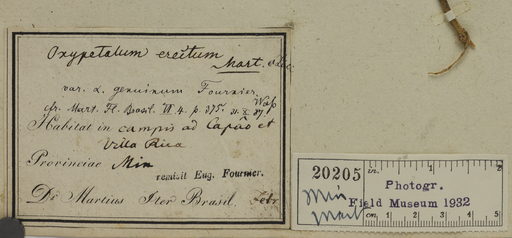 Oxypetalum erectum Mart.
var. α. genuinum Fournier
cfr. Mart. Fl. Brasil. VI 4. p. 275. 21. X 87.
Habitat in campis ad Capâo et
Villa Rica
Provinciae Min
revisit Eug. Fournier.
Dr Martius Iter Brasil. Febr.
20205
in.
1 2
Photogr.
Field Museum 1932
Min
Mart
cm. 1 2 3 4 5